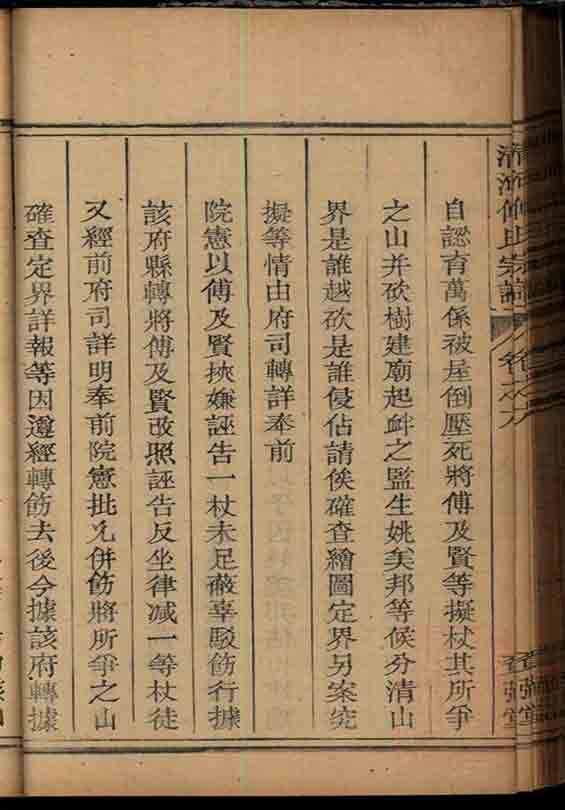 自認育萬係被屋倒壓死將傅及賢等擬杖其所爭
之山并砍樹建廟起衅之監生姚美邦等候分清山
界是誰越砍是誰侵佔請俟確查繪圖定界另案究
擬等情由府司轉詳奉前
院憲以傅及賢挾嫌誣告一杖未足蔽辜駁飭行據
該府縣轉將傅及賢改照誣告反坐律減一等杖徒
又經前府司詳明奉前院憲批允併飭將所爭之山
確查定界詳報等因遵經轉飭去後今據該府轉據